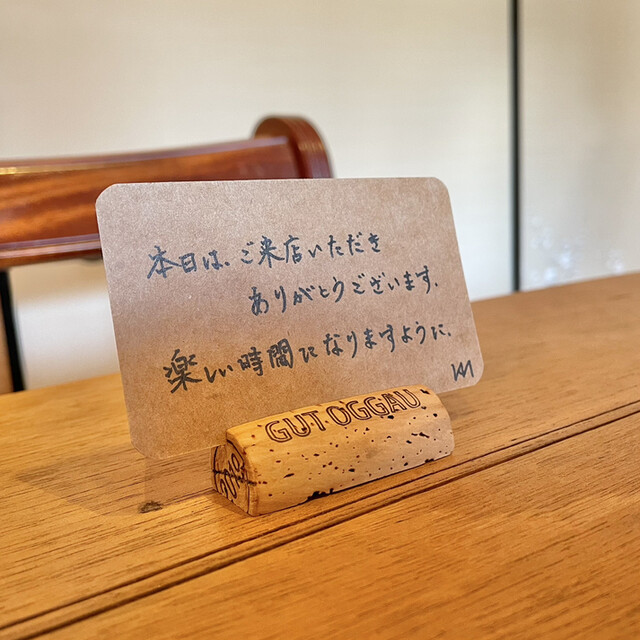 本日は、ご来店いただき
ありがとうございます.
楽しい時間になりますように.
GUT OGGAU